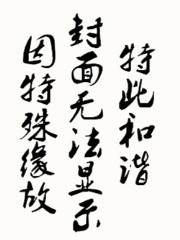 因特殊缘故
封面无法显示
特此和谐